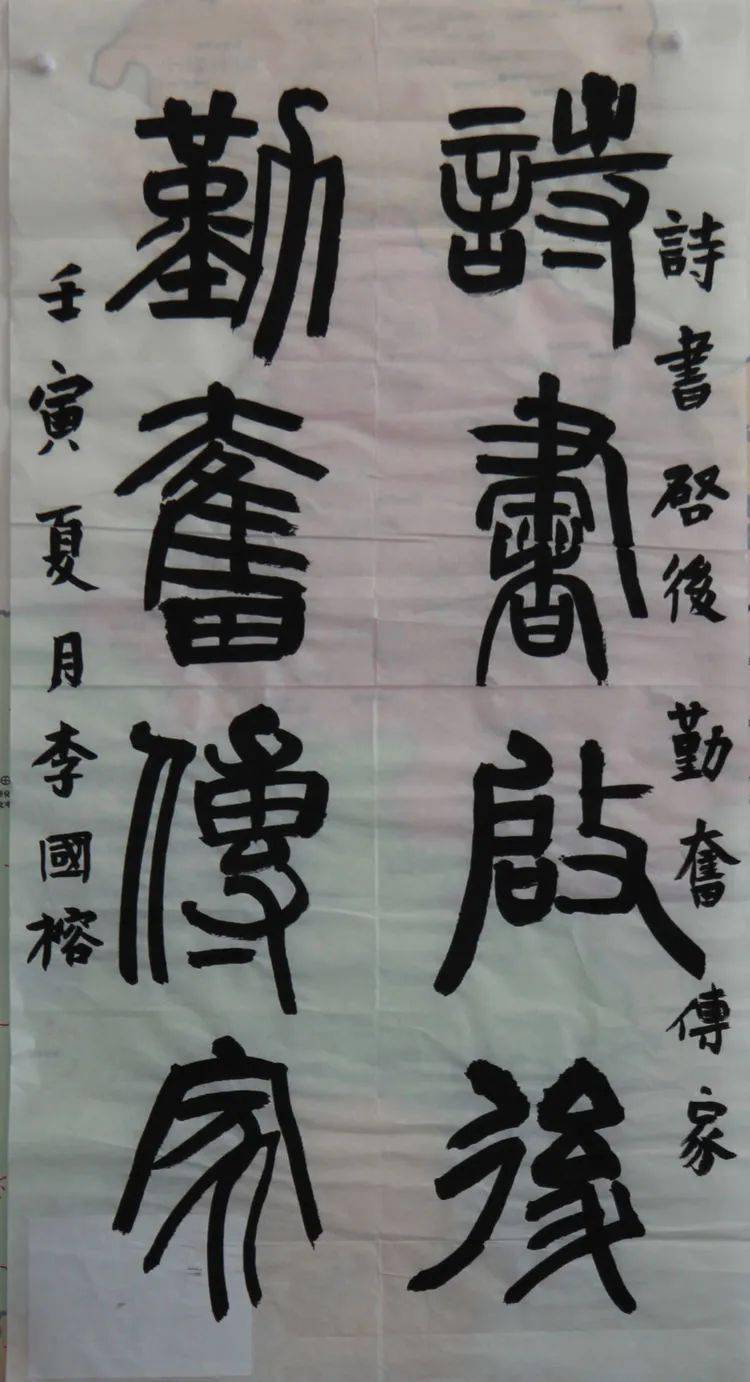 詩書啓後勤奮傳家
詩書啟後
勤奮傳家
壬寅夏月李國榕